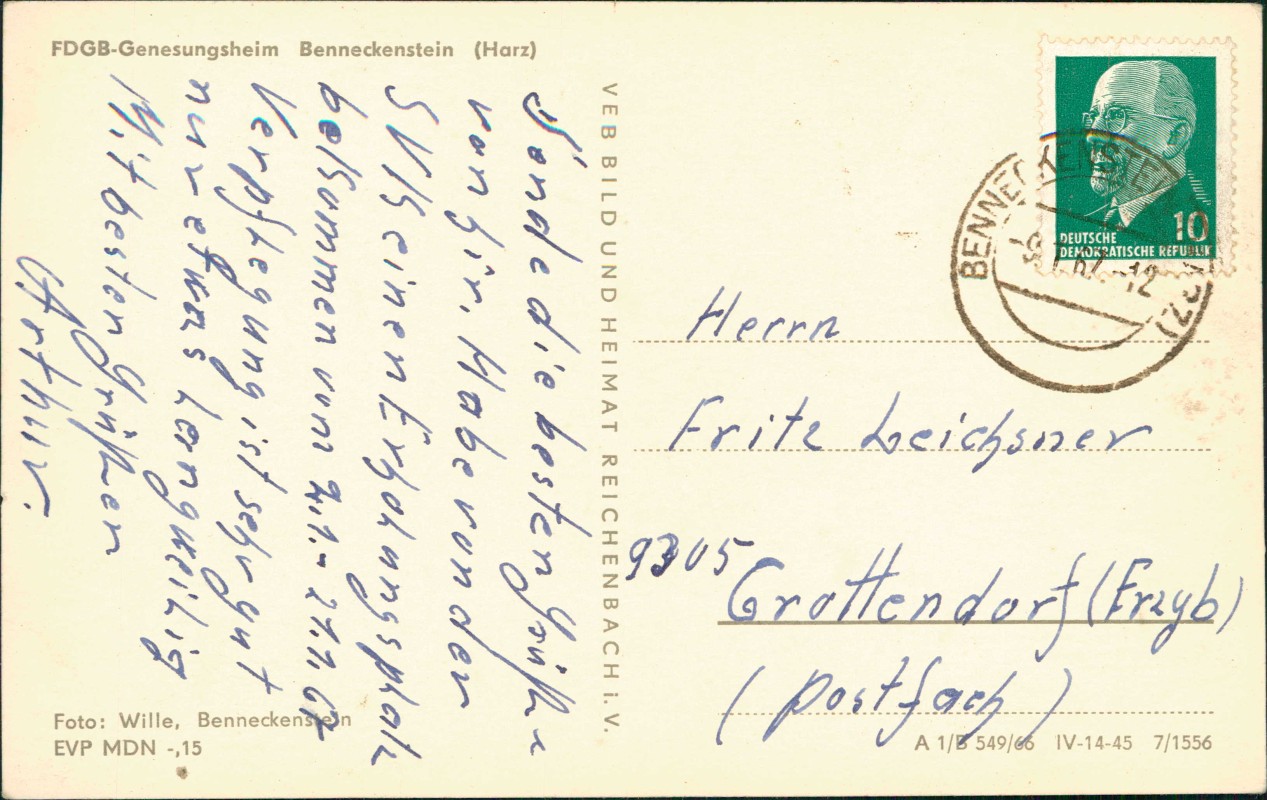 FDGB-Genesungsheim Benneckenstein (Harz)
Sende die besten Grüße
von hir. Habe von der
SVS einen Erholungsplatz
bekommen vom 2.1.- 21.1.67
Verpflegung ist sehr gut
nur etwas langweilig
Mit besten Grüßen
Arthur.
Foto: Wille, Benneckenstein
EVP MDN -,15
VEB BILD UND HEIMAT REICHENBACH i. V.
10
DEUTSCHE
DEMOKRATISCHE REPUBLIK
BENNECKENSTEIN
-9.1.67.-12
Herrn
Fritz Leichsner
9305
Crottendorf (Erzgb)
(Postfach)
A 1/B 549/66 IV-14-45 7/1556